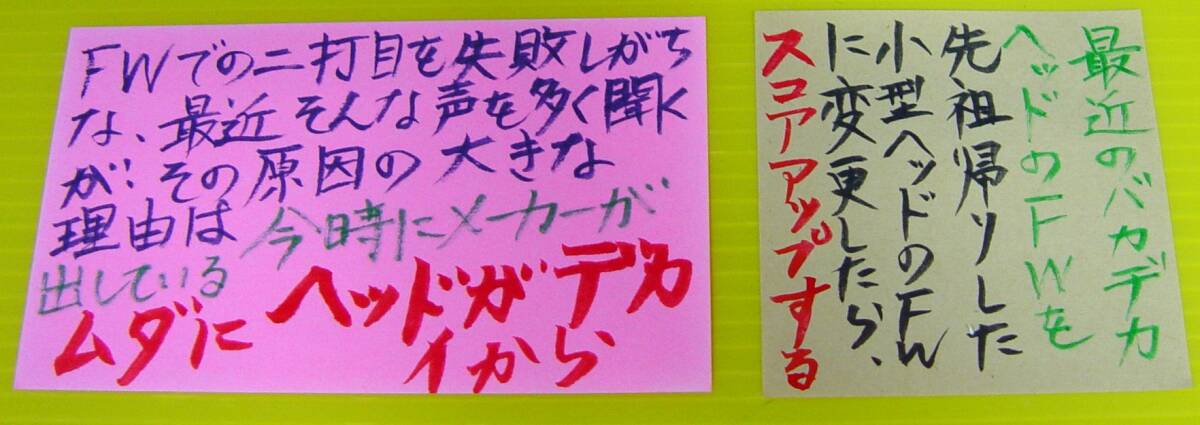 FWでの二打目を失敗しがち
な、最近そんな声を多く聞く
が、その原因の大きな
理由は今時にメーカーが
出している
ムダにヘッドがデカ
イから
最近のバカデカ
ヘッドのFWを
先祖帰りした
小型ヘッドのFW
に変更したら、
スコアアップする